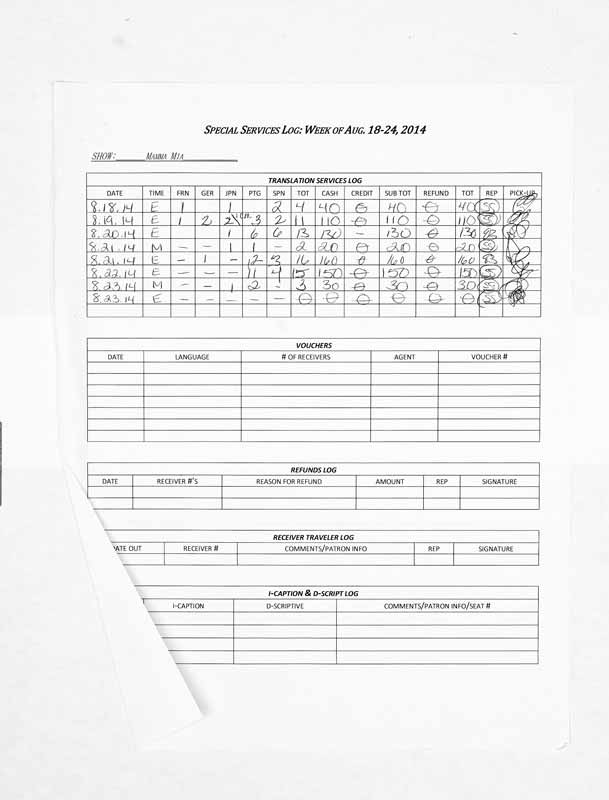 SPECIAL SERVICES LOG: WEEK OF AUG. 18-24, 2014
SHOW: MAMMA MIA
TRANSLATION SERVICES LOG
DATE TIME FRN GER JPN PTG SPN TOT CASH CREDIT SUB TOT REFUND TOT REP PICK-UP
8.18.14 E 1 1 2 4 40 ⊖ 40 ⊖ 40 SS
8.19.14 E 1 2 2 3 2 11 110 ⊖ 110 ⊖ 110 SS
8.20.14 E 1 6 6 13 130 – 130 ⊖ 130
8.21.14 M – – 1 1 – 2 20 ⊖ 20 ⊖ 20 SS
8.21.14 E – 1 – 12 3 16 160 ⊖ 160 ⊖ 160
8.22.14 E – – – 11 4 15 150 ⊖ 150 ⊖ 150 SS
8.23.14 M – – 1 2 – 3 30 ⊖ 30 ⊖ 30 SS
8.23.14 E – – – – – ⊖ ⊖ ⊖ ⊖ ⊖ ⊖ SS
VOUCHERS
DATE LANGUAGE # OF RECEIVERS AGENT VOUCHER #
REFUNDS LOG
DATE RECEIVER #'S REASON FOR REFUND AMOUNT REP SIGNATURE
RECEIVER TRAVELER LOG
ATE OUT RECEIVER # COMMENTS/PATRON INFO REP SIGNATURE
I-CAPTION & D-SCRIPT LOG
I-CAPTION D-SCRIPTIVE COMMENTS/PATRON INFO/SEAT #